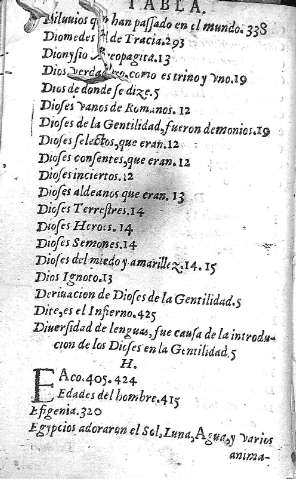 TABLA.
Diluuios que han paſſado en el mundo. 338
Diomedes de Tracia. 293
Dionyſio Areopagita. 13
Dios verdadero, como es trino y vno. 19
Dios de donde ſe dize. 5
Dioſes vanos de Romanos. 12
Dioſes de la Gentilidad, fueron demonios. 19
Dioſes ſelectos, que eran. 12
Dioſes conſentes, que eran. 12
Dioſes inciertos. 12
Dioſes aldeanos que eran. 13
Dioſes Terreſtres. 14
Dioſes Heroes. 14
Dioſes Semones. 14
Dioſes del miedo y amarillez. 14. 15
Dios Ignoto. 13
Deriuacion de Dioſes de la Gentilidad. 5
Dite, es el Infierno. 425
Diuerſidad de lenguas, fue cauſa de la introdu-
cion de los Dioſes en la Gentilidad. 5
H.
EAco. 405. 424
Edades del hombre. 415
Efigenia. 320
Egypcios adoraron el Sol, Luna, Agua, y varios
anima-